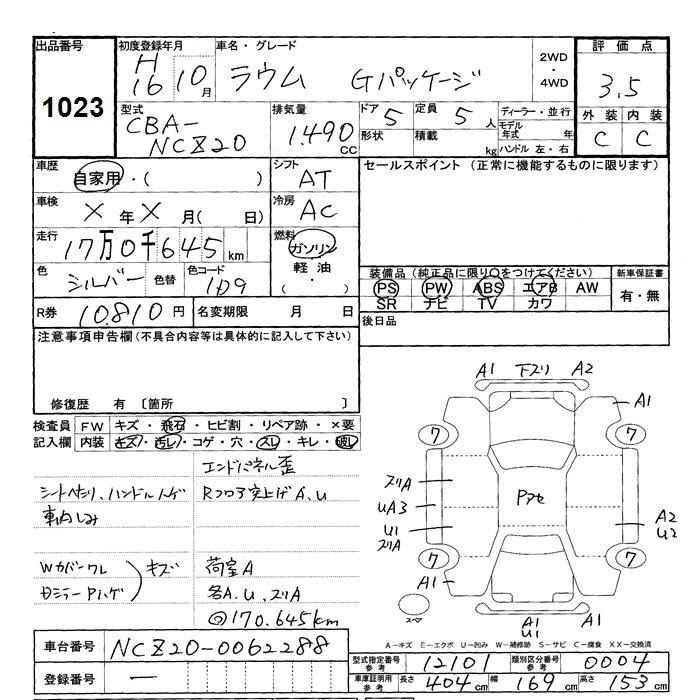 出品番号
1023
初度登録年月
H
16 10月
車名・グレード
ラウム Gパッケージ
2WD
・
4WD
評価点
3.5
外装 内装
C C
型式
CBA-
NCZ20
排気量
1.490
CC
ドア
5
定員
5人
形状
積載
kg
ディーラー・並行
モデル
年式 年
ハンドル 左・右
車歴
自家用・( )
シフト
AT
セールスポイント (正常に機能するものに限ります)
車検
×年×月( 日)
冷房
AC
走行
17万0千645km
燃料
ガソリン
軽油
・( )
色
シルバー
色替
色コード
1D9
装備品(純正品に限り○をつけてください)
PS PW ABS エアB AW
SR ナビ TV カワ
新車保証書
有・無
R券
10.810円
名変期限 月 日
後日品
注意事項申告欄(不具合内容等は具体的に記入して下さい)
修復歴 有 〔箇所 〕
検査員
記入欄
FW キズ・飛石・ヒビ割・リペア跡・×要
内装 キズ・汚レ・コゲ・穴・スレ・キレ・破レ
エンドパネル歪
シートへたり、ハンドルハゲ
Rフロア突上げA.U
車内しみ
Wカバーワレ
キズ
荷室A
各A.U.ズリA
◎170.645km
A1 下ズリ A2
A1
7 7
ズリA
UA3
U1
ズリA
Pアセ
A2
U2
7 7
A1
スペア
A1
U1
A-キズ E-エクボ U-凹み W-補修跡 S-サビ C-腐食 XX-交換済
車台番号
NCZ20-0062288
登録番号
—
型式指定番号
参考
12101
類別区分番号
参考
0004
車庫証明用
参考
長さ 404cm 幅 169cm 高さ 153cm